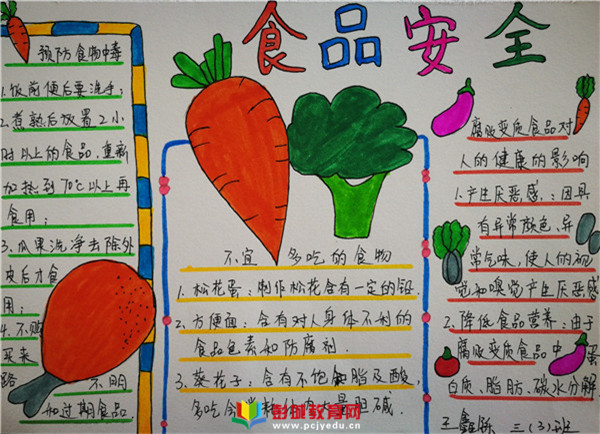 食品安全
预防食物中毒
1.饭前便后要洗手;
2.煮熟后放置2小
时以上的食品,重新
加热到70℃以上再
食用;
3.瓜果洗净去除外
皮后才食
用;
4.不购
买来
路
不明
和过期食品.
不宜多吃的食物
1.松花蛋:制作松花含有一定的铅
2、方便面:含有对人身体不利的
食品色素和防腐剂.
3.葵花子:含有不饱脂及酸,
多吃会
量胆碱.
腐败变质食品对
人的健康的影响
1.产生厌恶感:因具
有异常放色、异
常气味,使人的视
觉和嗅觉产生厌恶感
2、降低食品营养:由于
腐败变质食品中蛋
白质、脂肪、碳水分解.
王鑫 三(3)班
创诚教育网
www.pcjyedu.cn